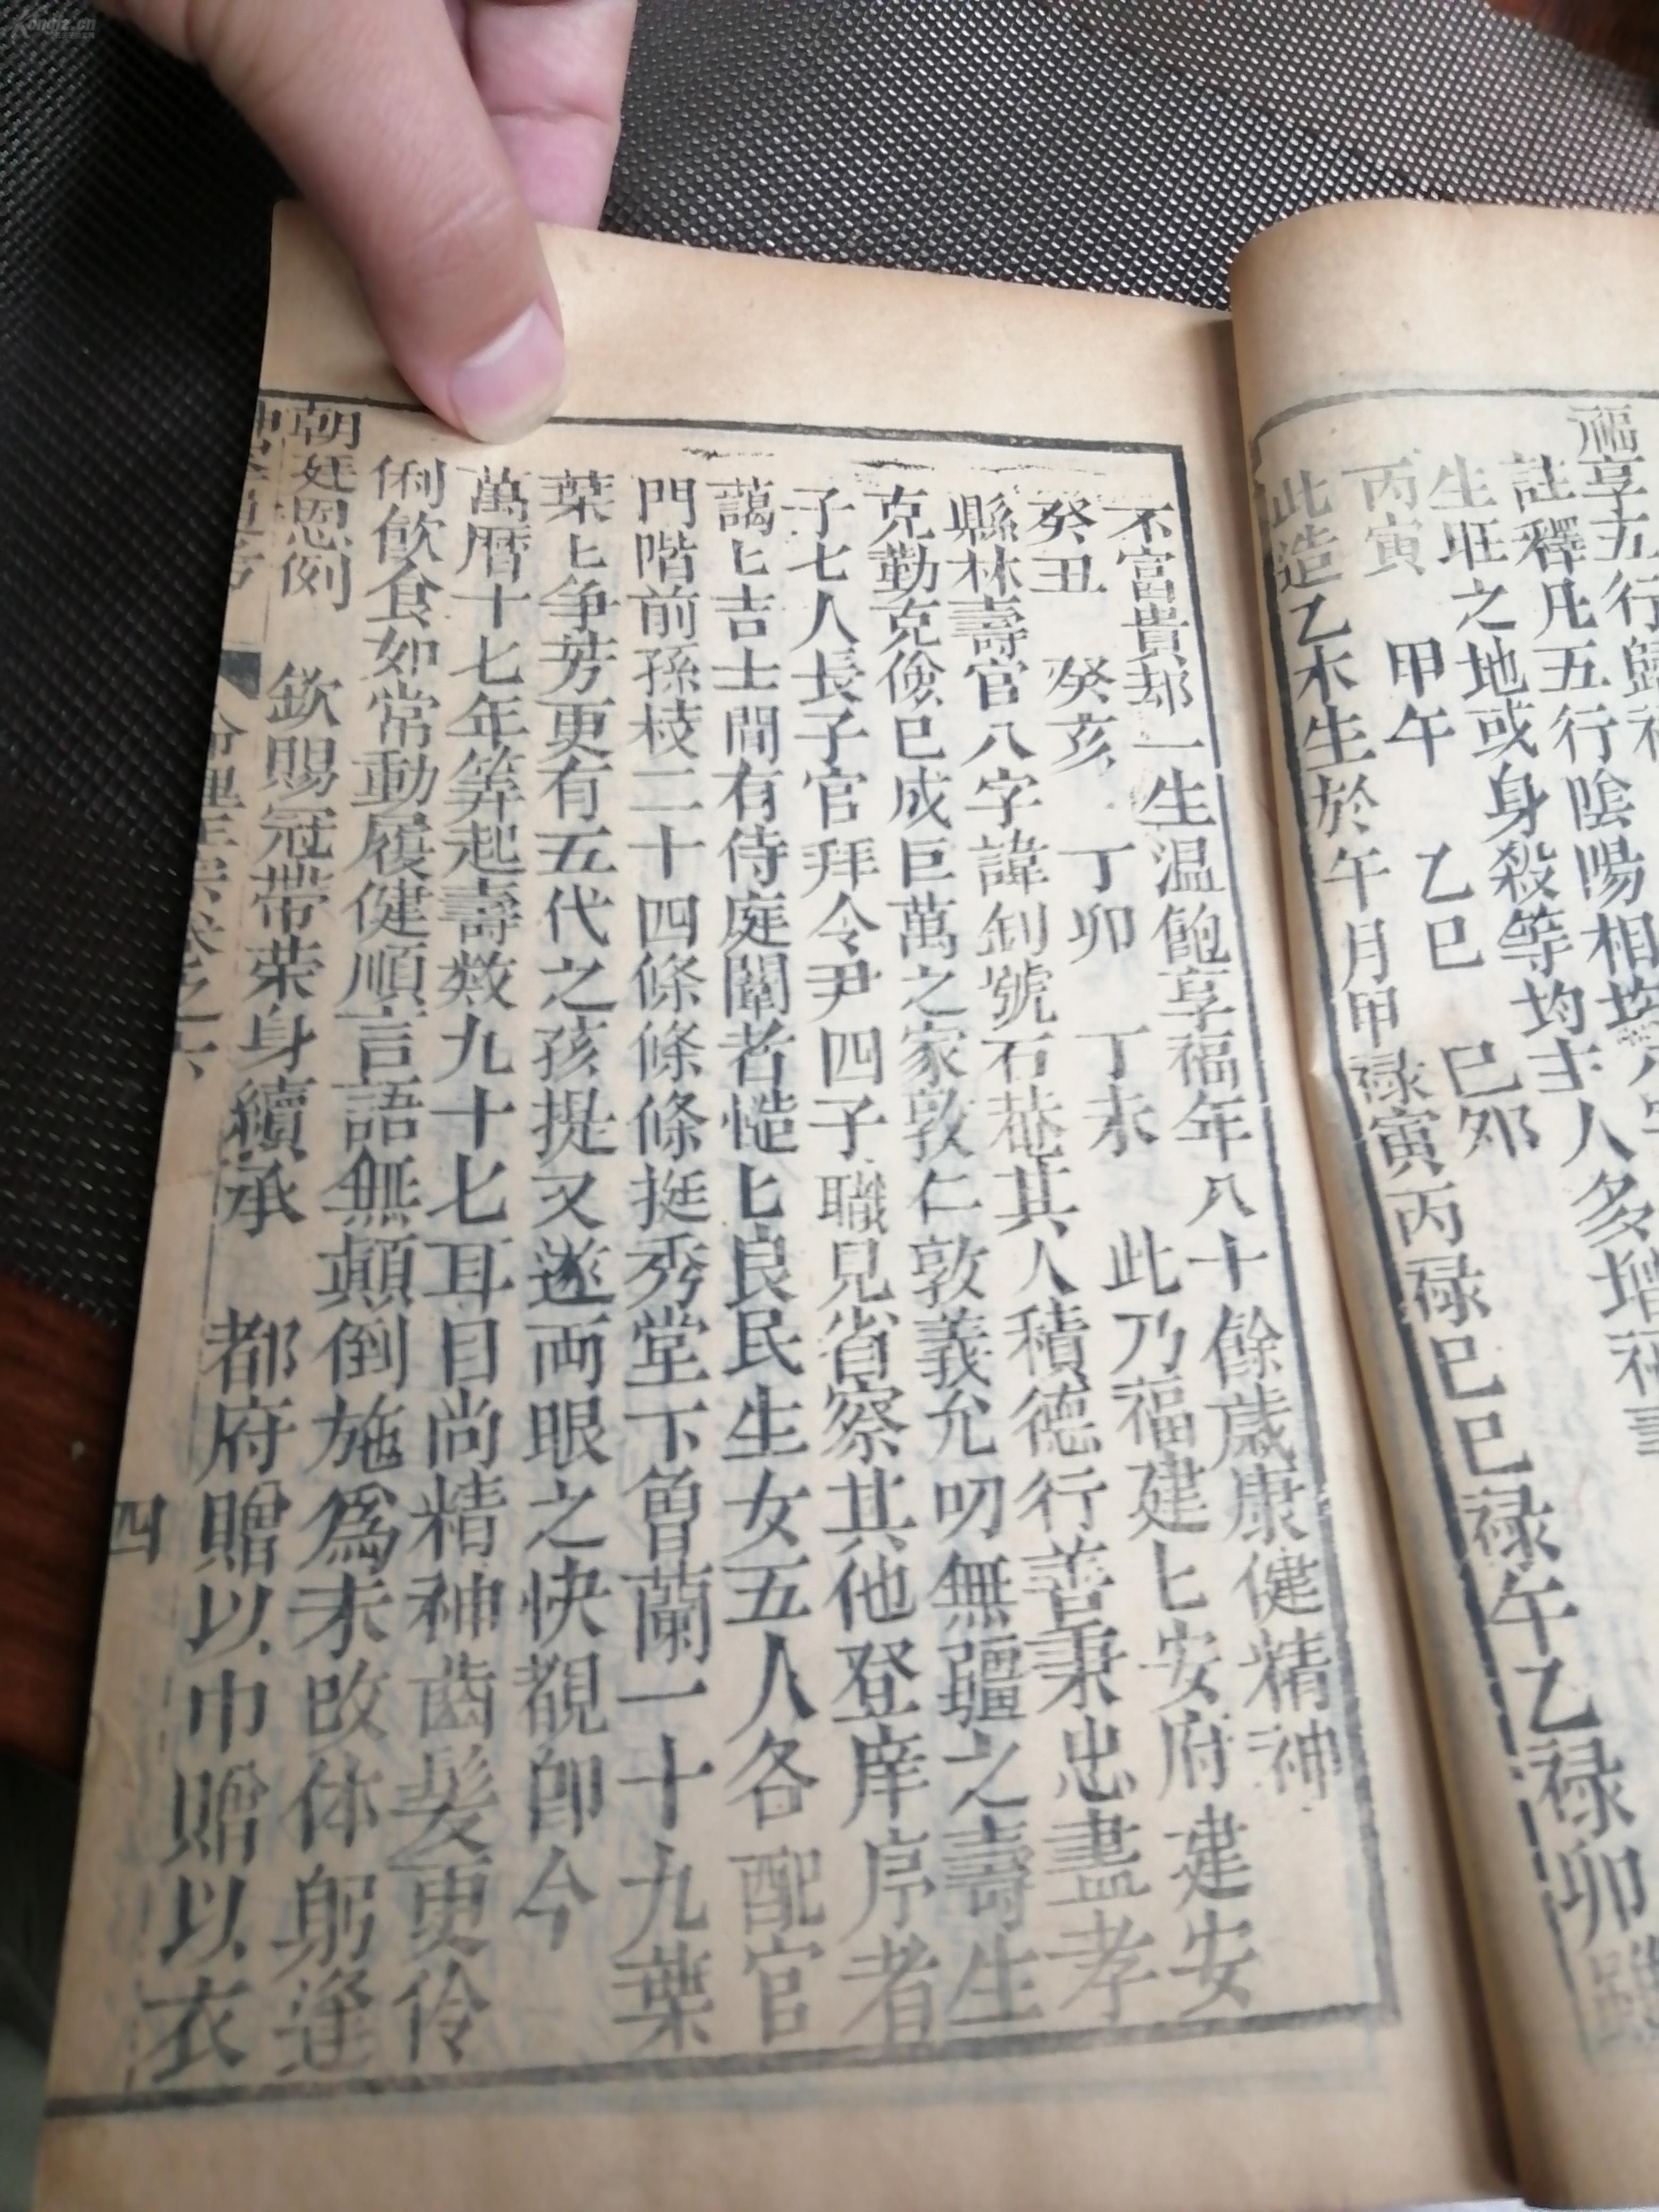 福享五行歸
註釋凡五行陰陽相均
生旺之地或身殺等均主人多增
丙寅　甲午　乙巳　己卯
此造乙木生於午月甲禄寅丙禄巳巳禄午乙禄卯
不富貴却一生温飽享福年八十餘歲康健精神
癸丑　癸亥　丁卯　丁未　此乃福建匕安府建安
縣林壽官八字諱釗號石菴其人積德行善秉忠盡孝
克勤克儉已成巨萬之家敦仁敦義允叨無疆之壽生
子七人長子官拜令尹四子職見省察其他登庠序者
藹匕吉士間有侍庭闈者慥匕良民生女五人各配官
門階前孫枝二十四條條條挺秀堂下曾蘭一十九葉
葉匕争芳更有五代之孩提又遂両眼之快覩即今
萬曆十七年筭起壽数九十七耳目尚精神齒髪更伶
俐飲食如常動履健順言語無顛倒施為未改体躬逢
朝廷恩例　欽賜冠帶荣身續承　都府贈以巾贈以衣
四